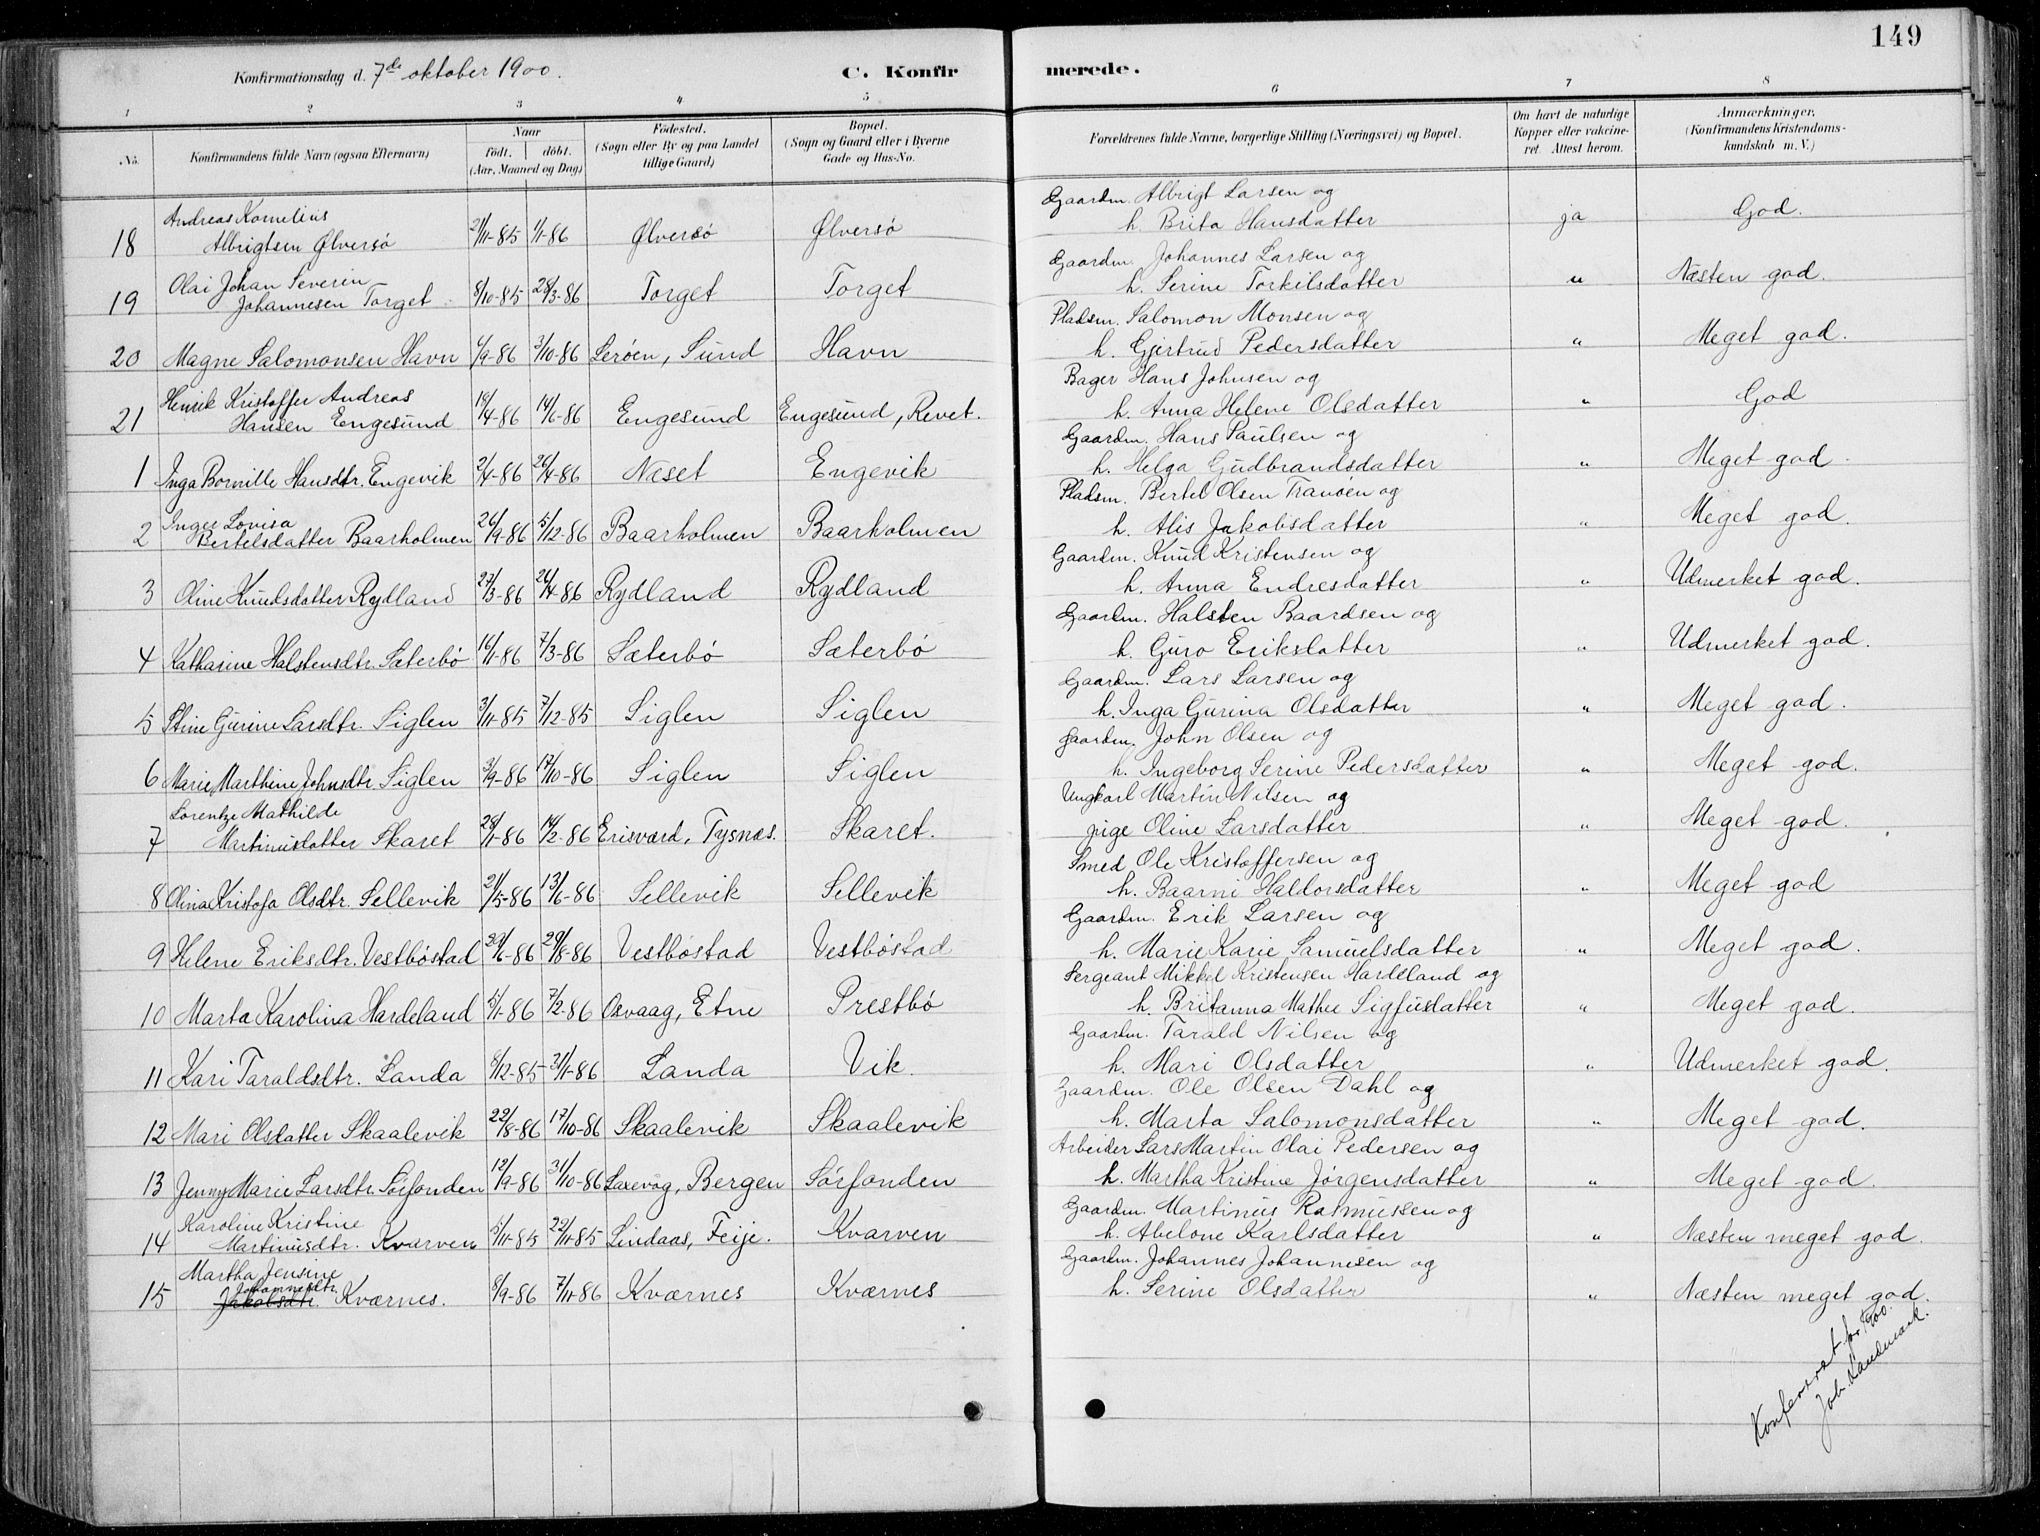 149
Konfirmationsdag d. 7de oktober 1900.
C. Konfirmerede.
1 2 3 4 5 6 7 8
No. Konfirmandens fulde Navn (ogsaa Efternavn) Naar født. døbt. (Aar, Maaned og Dag) Fødested. (Sogn eller By og paa Landet tillige Gaard) Bopæl. (Sogn og Gaard eller i Byerne Gade og Hus-No. Forældrenes fulde Navne, borgerlige Stilling (Næringsvei) og Bopæl. Om havt de naturlige Kopper eller vakcineret. Attest herom. Anmærkninger. (Konfirmandens Kristendomskundskab m. V.)
Andreas Kornelius Gaardm. Albrigt Larsen og
18 Albrigtsen Ølversø 21/11-85 1/1-86 Ølversø Ølversø h. Brita Hansdatter ja God.
Olai Johan Severin Gaardm. Johannes Larsen og
19 Johannesen Torget 8/10-85 28/3-86 Torget Torget h. Serine Torkilsdatter " Næsten god.
Pladsm. Salomon Monsen og
20 Magne Salomonsen Havn 4/9-86 3/10-86 Serøen, Sund Havn h. Gjertrud Pedersdatter " Meget god.
Henrik Kristoffer Andreas Bager Hans Johnsen og
21 Hansen Engesund 19/4-86 14/6-86 Engesund Engesund, Revet. h. Anna Helene Olsdatter " God
Gaardm. Hans Paulsen og
1 Inga Bornille Hansdtr. Engevik 2/4-86 26/4-86 Næset Engevik h. Helga Gudbrandsdatter " Meget god.
Inger Lovisa Pladsm. Bertel Olsen Tranøen og
2 Bertelsdatter Baarholmen 26/9-86 5/12-86 Baarholmen Baarholmen h. Alis Jakobsdatter " Meget god.
Gaardm. Knud Kristensen og
3 Oline Knudsdatter Rydland 27/3-86 26/4-86 Rydland Rydland h. Anna Endresdatter " Udmerket god.
Gaardm. Halsten Baardsen og
4 Katharine Halstensdtr. Sæterbø 16/1-86 7/3-86 Sæterbø Sæterbø h. Guro Eriksdatter " Udmerket god.
Gaardm. Lars Larsen og
5 Stine Gurine Larsdtr. Siglen 3/11-85 7/12-85 Siglen Siglen h. Inga Gurina Olsdatter " Meget god.
Gaardm. John Olsen og
6 Marie Marthine Johnsdtr. Siglen 3/9-86 17/10-86 Siglen Siglen h. Ingeborg Serine Pedersdatter " Meget god.
Lorentze Mathilde Ungkarl Martin Nilsen og
7 Martinusdatter Skaret 28/1-86 14/2-86 Erisværd, Tysnæs. Skaret. pige Oline Larsdatter " Meget god.
Smed Ole Kristoffersen og
8 Olina Kristofa Olsdtr. Sellevik 21/5-86 13/6-86 Sellevik Sellevik h. Baarni Haldorsdatter " Meget god
Gaardm. Erik Larsen og
9 Helene Eriksdtr. Vestbøstad 30/6-86 29/8-86 Vestbøstad Vestbøstad h. Marie Karie Samuelsdatter " Meget god.
Sergeant Mikkel Kristensen Hardeland og
10 Marta Karolina Hardeland 5/1-86 7/2-86 Osvaag, Etne Prestbø h. Britanna Mathea Sigfusdatter " Meget god.
Gaardm. Tarald Nilsen og
11 Kari Taraldsdtr. Landa 8/12-85 31/1-86 Landa Vik. h. Mari Olsdatter " Udmerket god.
Gaardm. Ole Olsen Dahl og
12 Mari Olsdatter Skaalevik 22/8-86 17/10-86 Skaalevik Skaalevik h. Marta Salomonsdatter " Meget god.
Arbeider Lars Martin Olai Pedersen og
13 Jenny Marie Larsdtr. Sørfonden 12/9-86 31/10-86 Laxevog, Bergen Sørfonden h. Martha Kristine Jørgensdatter " Meget god.
Karoline Kristine Gaardm. Martinus Rasmussen og
14 Martinusdtr. Kvarven 5/11-85 22/11-85 Lindaas, Feije. Kvarven h. Abelone Karlsdatter " Næsten meget god.
Martha Jensine Gaardm. Johannes Johannesen og
Johannesdtr.
15 Jakobsdtr. Kværnes. 8/9-86 7/11-86 Kværnes Kværnes h. Serine Olsdatter " Næsten meget god.
Konferrat for 1900.
Joh. Landmark.